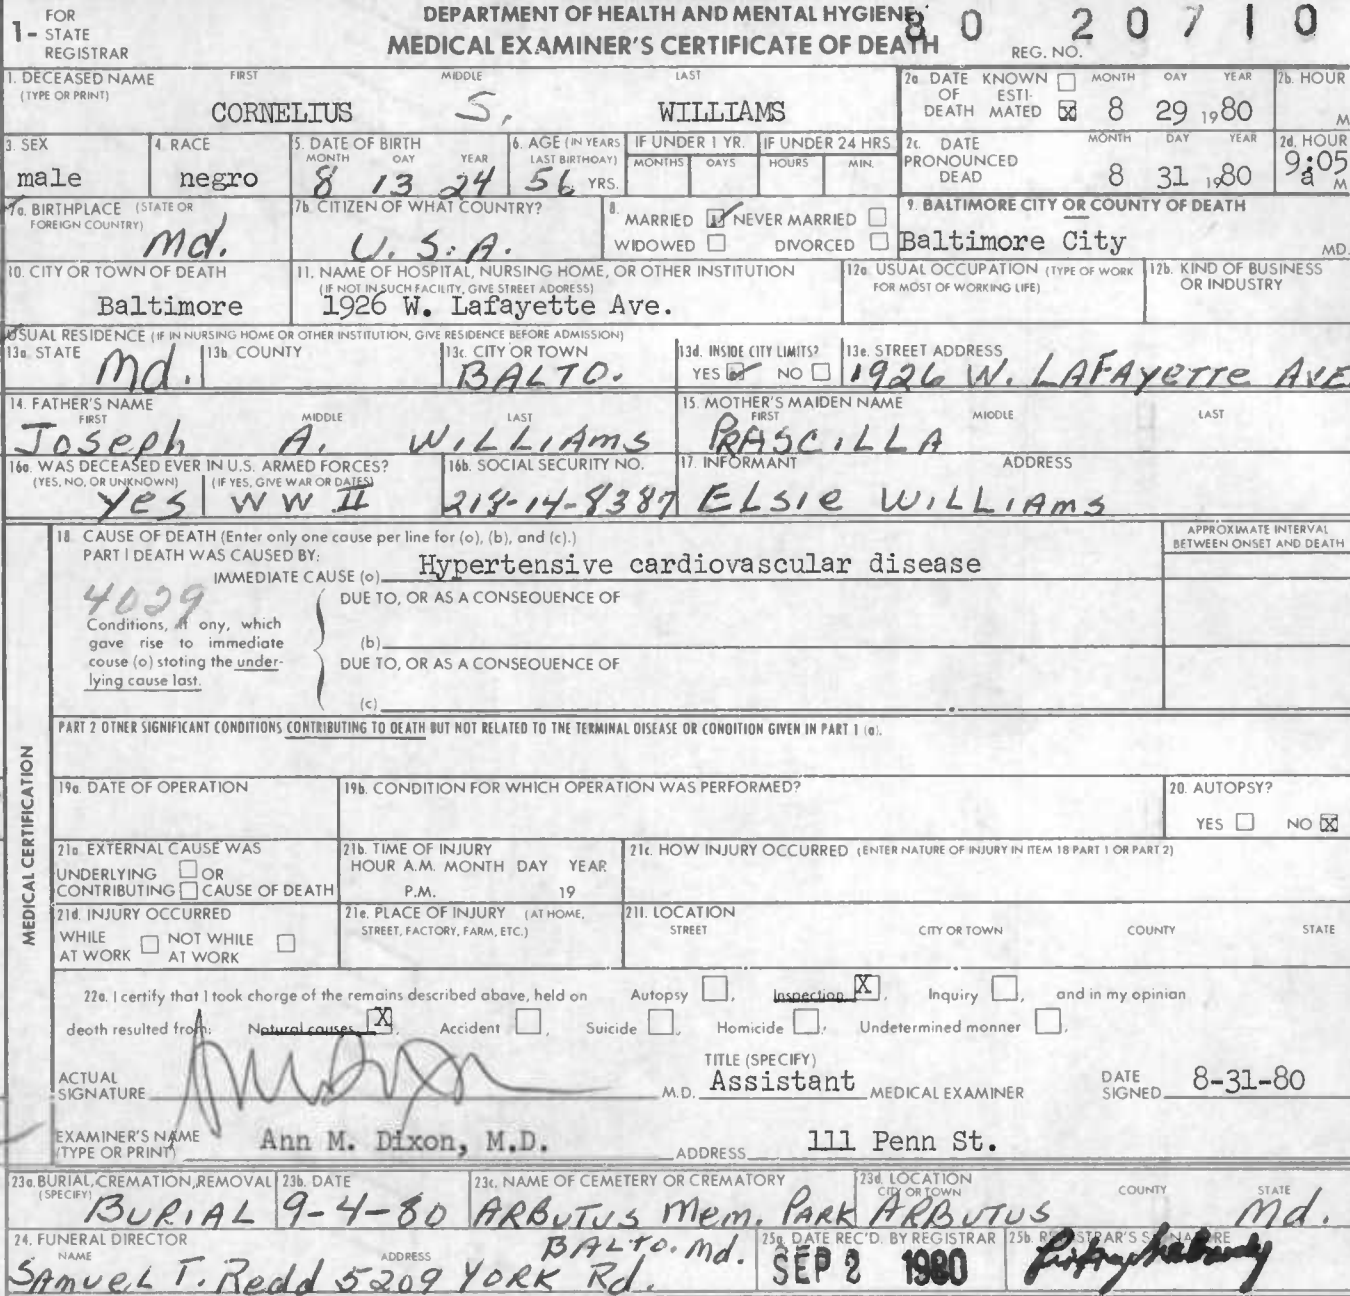 1- FOR STATE REGISTRAR
DEPARTMENT OF HEALTH AND MENTAL HYGIENE
MEDICAL EXAMINER'S CERTIFICATE OF DEATH
80 20710
REG. NO.
1. DECEASED NAME (TYPE OR PRINT) FIRST MIDDLE LAST
CORNELIUS S. WILLIAMS
2a. DATE OF DEATH KNOWN ☐ ESTIMATED ☒ MONTH DAY YEAR
8 29 1980
2b. HOUR
M
3. SEX
male
4. RACE
negro
5. DATE OF BIRTH MONTH DAY YEAR
8 13 24
6. AGE (IN YEARS LAST BIRTHDAY)
56 YRS.
IF UNDER 1 YR. MONTHS DAYS
IF UNDER 24 HRS. HOURS MIN.
2c. DATE PRONOUNCED DEAD MONTH DAY YEAR
8 31 1980
2d. HOUR
9:05 a M
7a. BIRTHPLACE (STATE OR FOREIGN COUNTRY)
Md.
7b. CITIZEN OF WHAT COUNTRY?
U.S.A.
8. MARRIED ☑ NEVER MARRIED ☐
WIDOWED ☐ DIVORCED ☐
9. BALTIMORE CITY OR COUNTY OF DEATH
Baltimore City MD.
10. CITY OR TOWN OF DEATH
Baltimore
11. NAME OF HOSPITAL, NURSING HOME, OR OTHER INSTITUTION
(IF NOT IN SUCH FACILITY, GIVE STREET ADDRESS)
1926 W. Lafayette Ave.
12a. USUAL OCCUPATION (TYPE OF WORK FOR MOST OF WORKING LIFE)
12b. KIND OF BUSINESS OR INDUSTRY
USUAL RESIDENCE (IF IN NURSING HOME OR OTHER INSTITUTION, GIVE RESIDENCE BEFORE ADMISSION)
13a. STATE
Md.
13b. COUNTY
13c. CITY OR TOWN
BALTO.
13d. INSIDE CITY LIMITS?
YES ☑ NO ☐
13e. STREET ADDRESS
1926 W. LAFAyeTTe AVE
14. FATHER'S NAME FIRST MIDDLE LAST
Joseph A. WILLIAMS
15. MOTHER'S MAIDEN NAME FIRST MIDDLE LAST
PRASCILLA
16a. WAS DECEASED EVER IN U.S. ARMED FORCES?
(YES, NO, OR UNKNOWN) (IF YES, GIVE WAR OR DATES)
yes WW II
16b. SOCIAL SECURITY NO.
218-14-8387
17. INFORMANT ADDRESS
ELSIE WILLIAMS
MEDICAL CERTIFICATION
18. CAUSE OF DEATH (Enter only one cause per line for (a), (b), and (c).)
APPROXIMATE INTERVAL BETWEEN ONSET AND DEATH
PART I DEATH WAS CAUSED BY:
IMMEDIATE CAUSE (a) Hypertensive cardiovascular disease
4029
Conditions, if any, which gave rise to immediate cause (a) stating the underlying cause last.
DUE TO, OR AS A CONSEQUENCE OF
(b)
DUE TO, OR AS A CONSEQUENCE OF
(c)
PART 2 OTHER SIGNIFICANT CONDITIONS CONTRIBUTING TO DEATH BUT NOT RELATED TO THE TERMINAL DISEASE OR CONDITION GIVEN IN PART 1 (a).
19a. DATE OF OPERATION
19b. CONDITION FOR WHICH OPERATION WAS PERFORMED?
20. AUTOPSY?
YES ☐ NO ☒
21a. EXTERNAL CAUSE WAS
UNDERLYING ☐ OR
CONTRIBUTING ☐ CAUSE OF DEATH
21b. TIME OF INJURY
HOUR A.M. MONTH DAY YEAR
P.M. 19
21c. HOW INJURY OCCURRED (ENTER NATURE OF INJURY IN ITEM 18 PART 1 OR PART 2)
21d. INJURY OCCURRED
WHILE AT WORK ☐ NOT WHILE AT WORK ☐
21e. PLACE OF INJURY (AT HOME, STREET, FACTORY, FARM, ETC.)
21f. LOCATION
STREET CITY OR TOWN COUNTY STATE
22a. I certify that I took charge of the remains described above, held on Autopsy ☐, Inspection ☒, Inquiry ☐, and in my opinion
death resulted from: Natural causes ☒, Accident ☐, Suicide ☐, Homicide ☐, Undetermined manner ☐.
ACTUAL SIGNATURE M.D.
TITLE (SPECIFY)
Assistant MEDICAL EXAMINER
DATE SIGNED 8-31-80
EXAMINER'S NAME (TYPE OR PRINT) Ann M. Dixon, M.D.
ADDRESS 111 Penn St.
23a. BURIAL, CREMATION, REMOVAL (SPECIFY)
BURIAL
23b. DATE
9-4-80
23c. NAME OF CEMETERY OR CREMATORY
ARBUTUS Mem. PARK
23d. LOCATION CITY OR TOWN COUNTY STATE
ARBUTUS Md.
24. FUNERAL DIRECTOR NAME ADDRESS
SAmueL T. Redd 5209 YORK Rd. BALTO. Md.
25a. DATE REC'D. BY REGISTRAR
SEP 2 1980
25b. REGISTRAR'S SIGNATURE